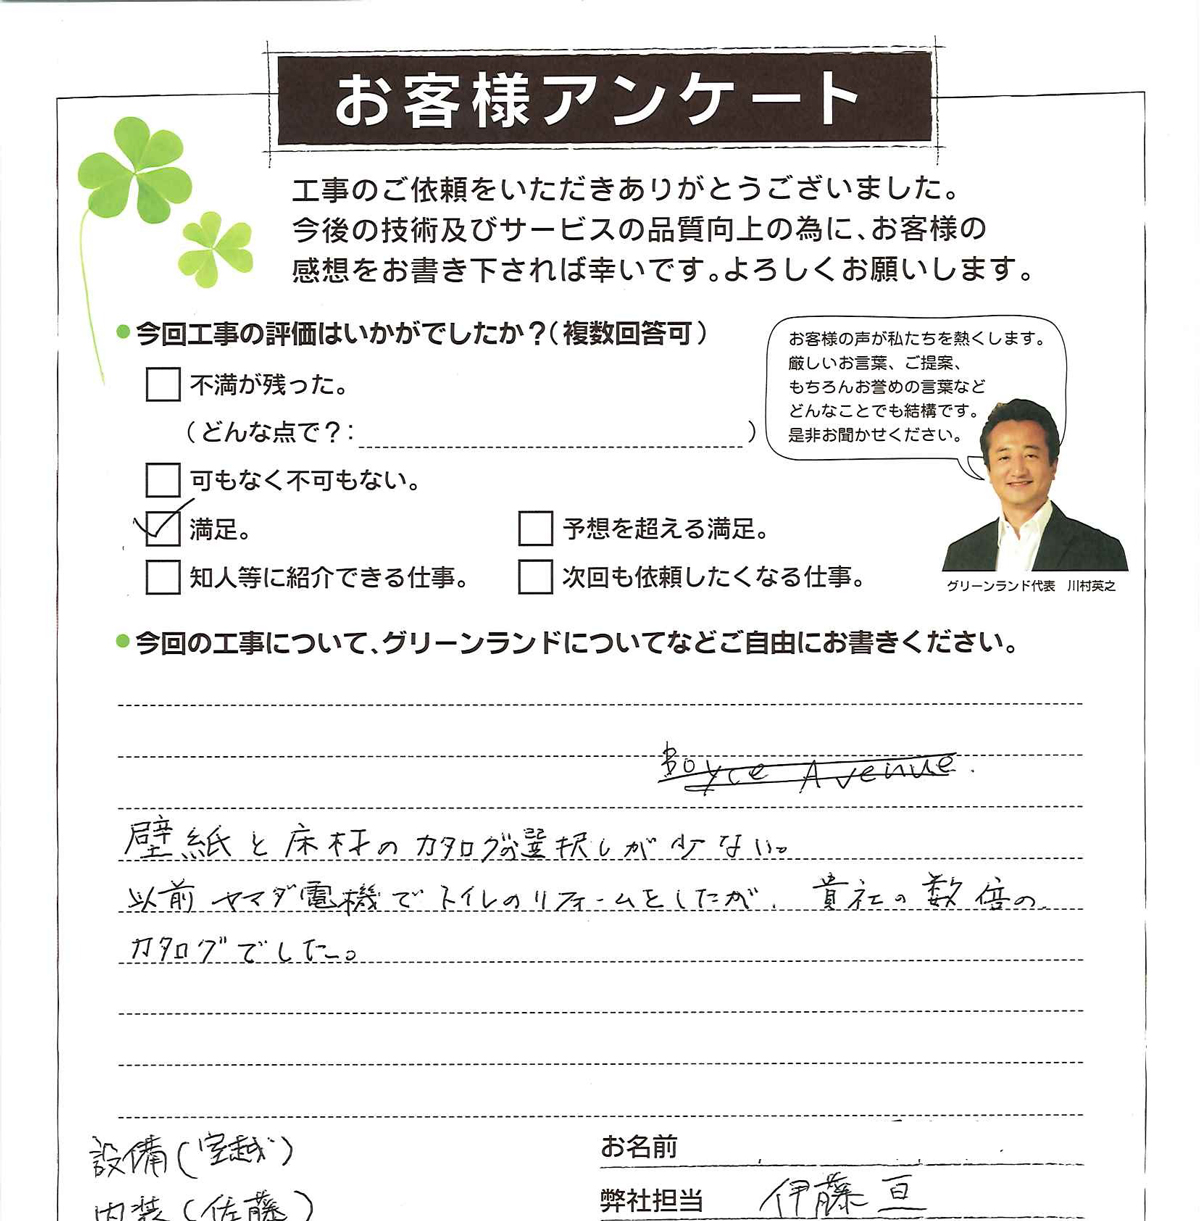 お客様アンケート
工事のご依頼をいただきありがとうございました。
今後の技術及びサービスの品質向上の為に、お客様の
感想をお書き下されば幸いです。よろしくお願いします。
●今回工事の評価はいかがでしたか？（複数回答可）
不満が残った。
（どんな点で？：）
可もなく不可もない。
満足。
予想を超える満足。
知人等に紹介できる仕事。
次回も依頼したくなる仕事。
お客様の声が私たちを熱くします。
厳しいお言葉、ご提案、
もちろんお誉めの言葉など
どんなことでも結構です。
是非お聞かせください。
グリーンランド代表　川村英之
●今回の工事について、グリーンランドについてなどご自由にお書きください。
Boyce Avenue.
壁紙と床材のカタログの選択しが少ない。
以前ヤマダ電機でトイレのリフォームをしたが、貴社の数倍の
カタログでした。
設備(室越)
内装(佐藤)
お名前
弊社担当 伊藤 亘